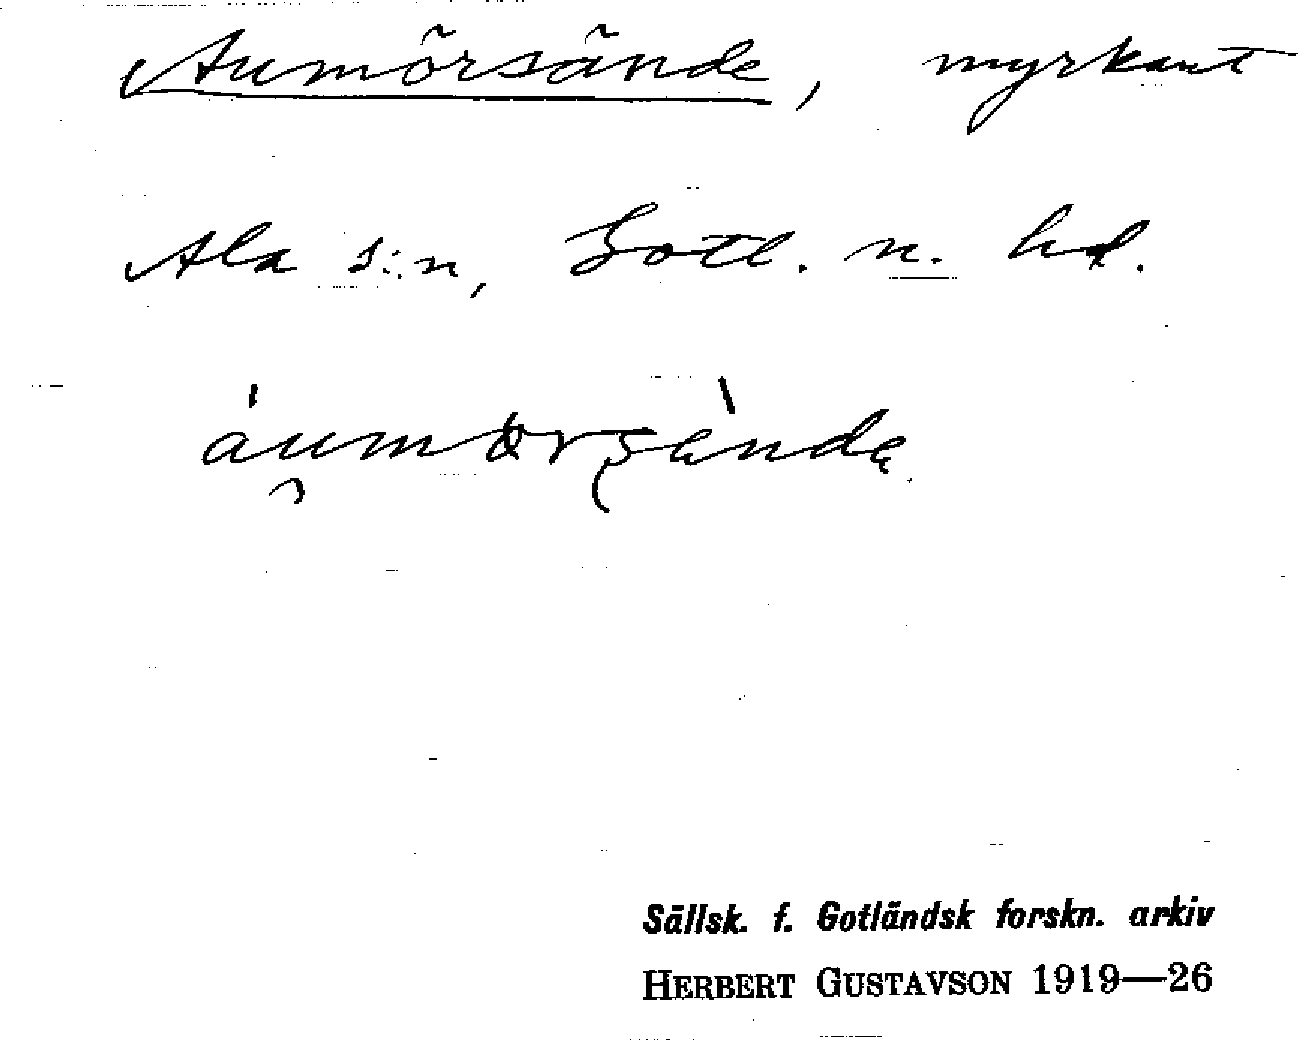 Aumörsände, myrkant
Ala s:n, Gotl. n. hd.
áu̯mörsàndę
Sällsk. f. Gotländsk forskn. arkiv
HERBERT GUSTAVSON 1919—26